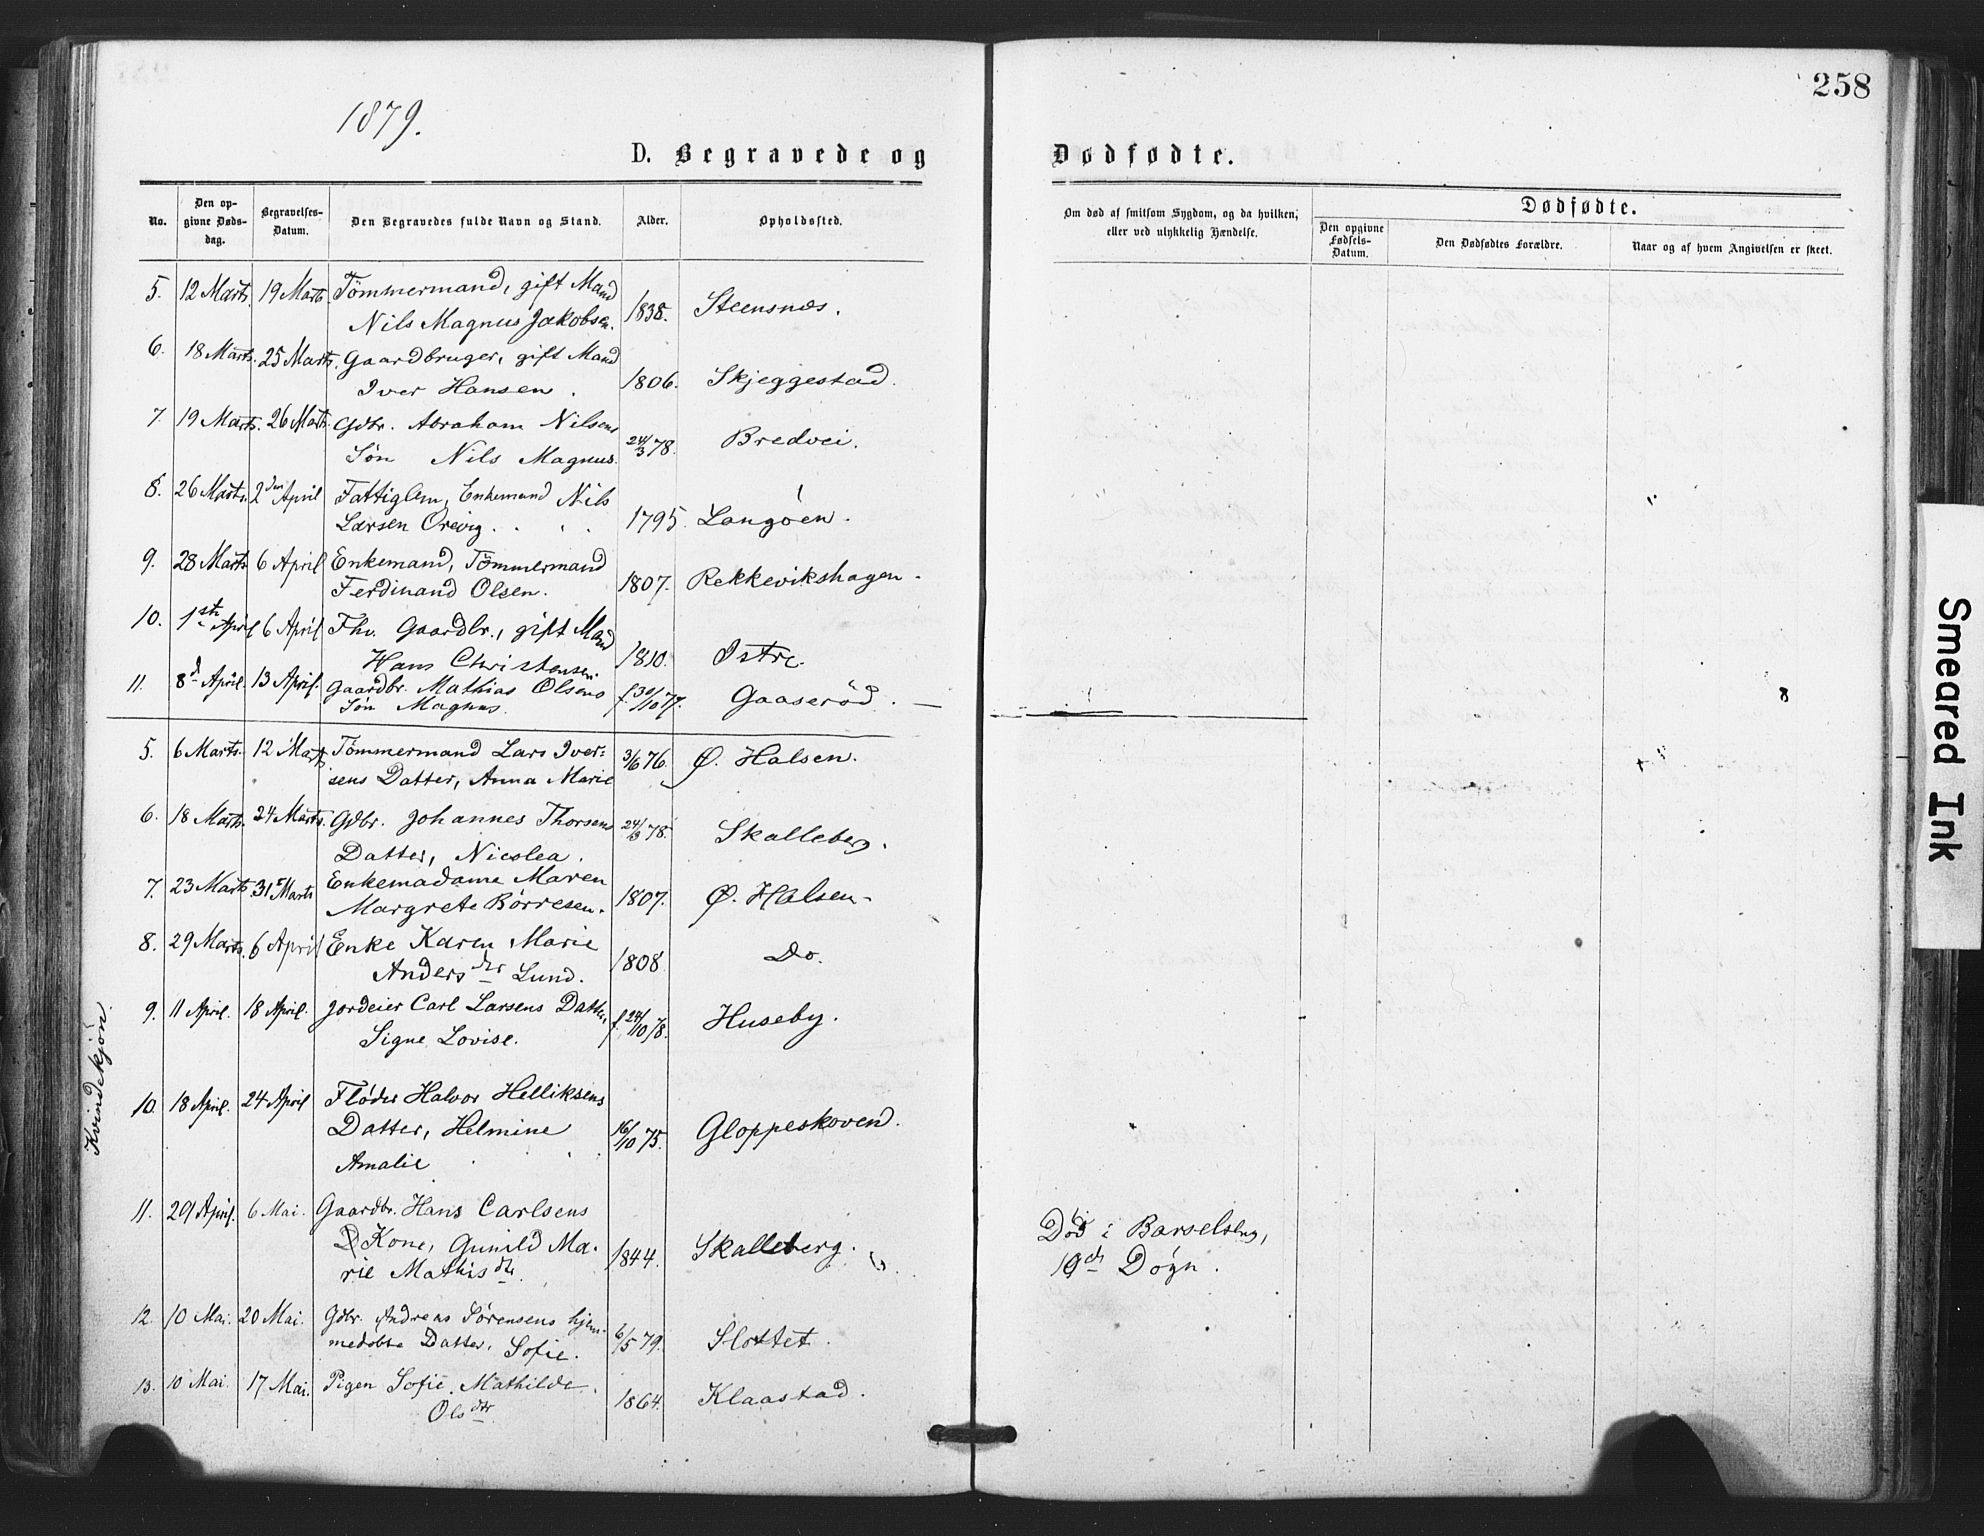 258
1879.
D. Begravede og Dødfødte.
No.
Den opgivne Dødsdag.
Begravelses-Datum.
Den Begravedes fulde Navn og Stand.
Alder.
Opholdssted.
Om død af smitsom Sygdom, og da hvilken; eller ved ulykkelig Hændelse.
Dødfødte.
Den opgivne Fødsels-Datum.
Den Dødfødtes Forældre.
Naar og af hvem Angivelsen er skeet.
5. 12 Marts. 19 Marts Tömmermand, gift Mand
Nils Magnus Jakobsen. 1838. Steensnæs.
6. 18 Marts. 25 Marts. Gaardbruger, gift Mand
Iver Hansen. 1806. Skjeggestad.
7. 19 Marts. 26 Marts. Gdbr. Abraham Nilsens
Søn Nils Magnus. 24/3 78. Bredvei.
8. 26 Marts. 2den April Fattiglem, Enkemand Nils
Larsen Örevig. 1795 Langöen.
9. 28 Marts 6 April Enkemand, Tömmermand
Ferdinand Olsen. 1807. Rekkevikshagen.
10. 1ste April 6 April Fhv. Gaardbr., gift Mand
Hans Christensen. 1810. Østre.
11. 8d April. 13 April. Gaardbr. Mathias Olsens
Søn Magnus. f. 30/10 77. Gaaserød.
5. 6 Marts. 12 Marts Tömmermand Lars Iver-
sens Datter, Anna Marie 3/6 76. Ø. Halsen.
6. 18 Marts. 24 Marts. Gdbr. Johannes Thorsens
Datter, Nicolea. 24/3 78. Skalleberg.
7. 23 Marts. 31 Marts Enkemadame Maren
Margrete Börresen. 1807. Ø. Halsen.
8. 29 Marts. 6 April Enke Karen Marie
Andersdtr Lund. 1808 Do.
Kvindekjøn
9. 11 April. 18 April. Jordeier Carl Larsens Datter,
Signe Lovise. f. 24/10 78. Huseby.
10. 18 April. 24 April Fløder Halvor Helliksens
Datter, Helmine 16/10 75. Gloppeskoven.
Amalie
11. 29 April. 6 Mai. Gaardbr. Hans Carlsens
Kone, Gunild Ma-
rie Mathisdtr. 1844. Skalleberg. Død i Barselseng,
19de Døgn.
12. 10 Mai. 20 Mai. Gdbr. Andreas Sørensens hjem-
medøbte Datter, Sofie. 6/5 79. Slottet.
13. 10 Mai. 17 Mai. Pigen Sofie Mathilde
Olsdtr. 1864. Klaastad.
Smeared Ink